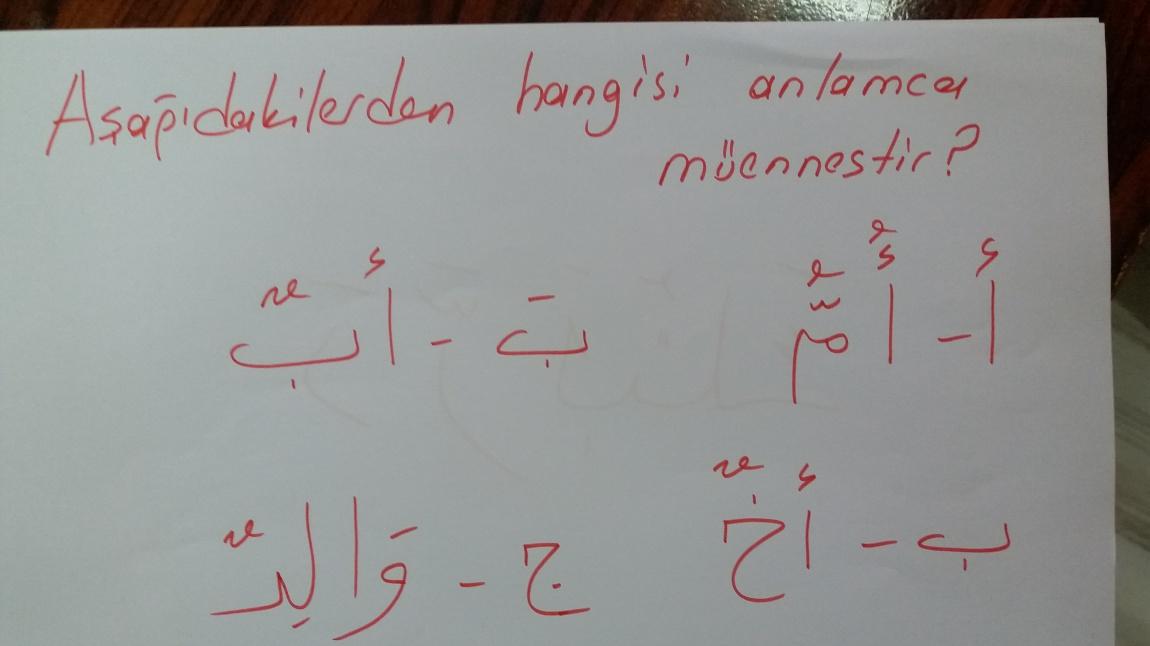 Aşağıdakilerden hangisi anlamca
müennestir?
أ - أُمٌّ
بَ - أبٌ
ب - أخٌ
ج - وَالِدٌ